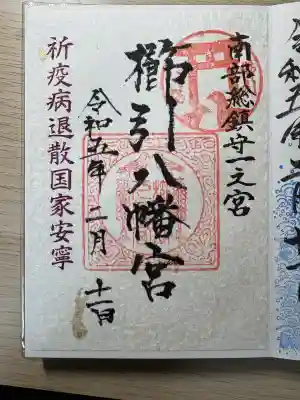 南部総鎮守一之宮
櫛引八幡宮
令和五年二月十一日
祈疫病退散国家安寧
令和五年